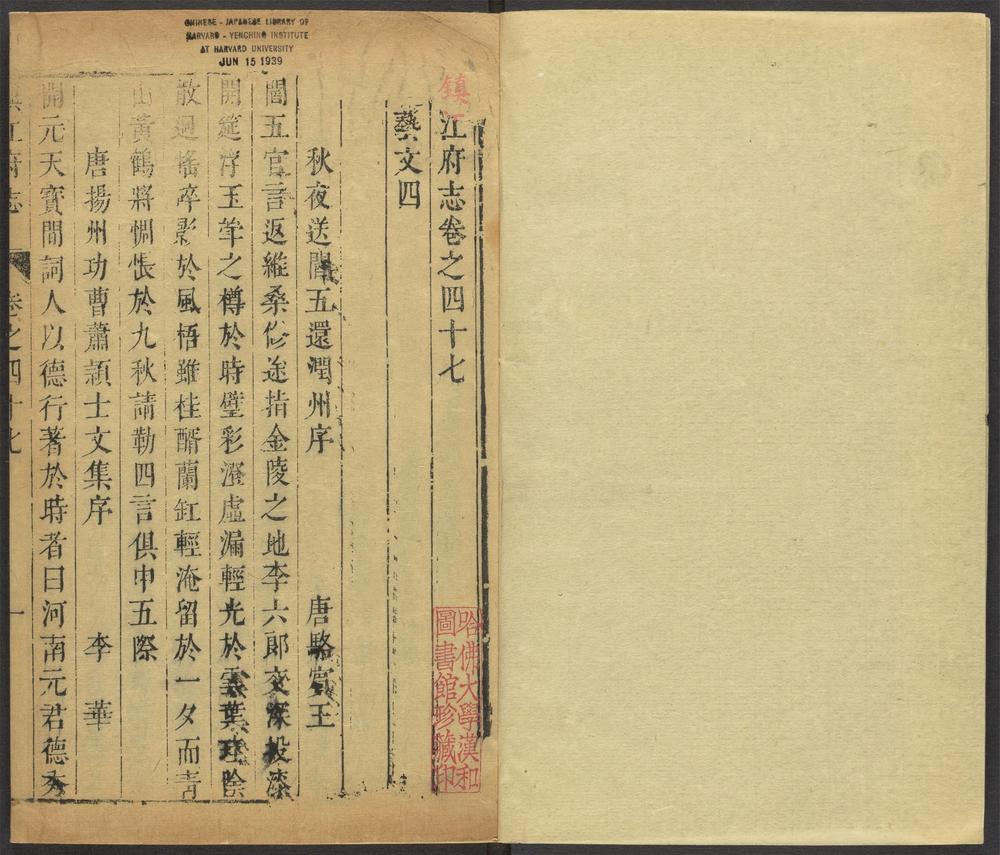 CHINESE - JAPANESE LIBRARY OF
HARVARD - YENCHING INSTITUTE
AT HARVARD UNIVERSITY
JUN 15 1939
鎮江府志卷之四十七
藝文四
秋夜送閻五還潤州序 唐駱賓王
閻五官言返維桑修途指金陵之地李六郎交深投漆
開筵浮玉斝之樽於時璧彩澄虛漏輕光於雲葉珪陰
散迥搖碎影於風梧雖桂醑蘭缸輕淹留於一夕而青
山黃鶴將惆悵於九秋請勒四言俱申五際
唐揚州功曹蕭穎士文集序 李華
開元天寶間詞人以德行著於時者曰河南元君德秀
鎮江府志 卷之四十七 一
哈佛大學漢和
圖書館珍藏印